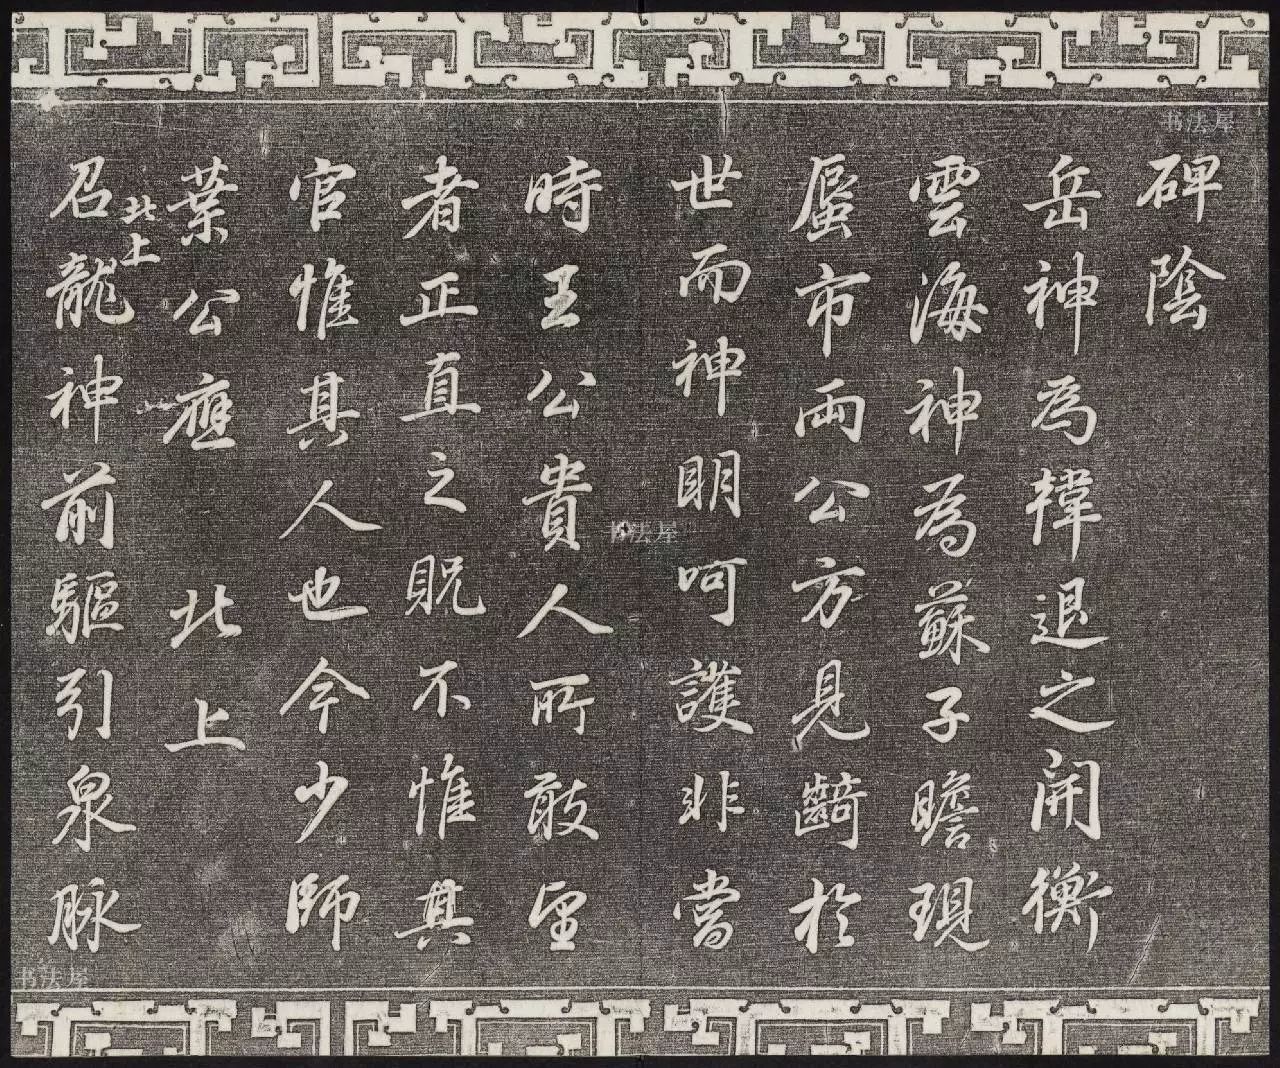 碑陰
岳神為韓退之開衡
雲海神為蘇子瞻現
蜃市兩公方見齮於
世而神明呵護非當
時王公貴人所敢望
者正直之貺不惟其
官惟其人也今少師
葉公應 北上
北上
召龍神前驅引泉脉
书法屋
书法屋
书法屋